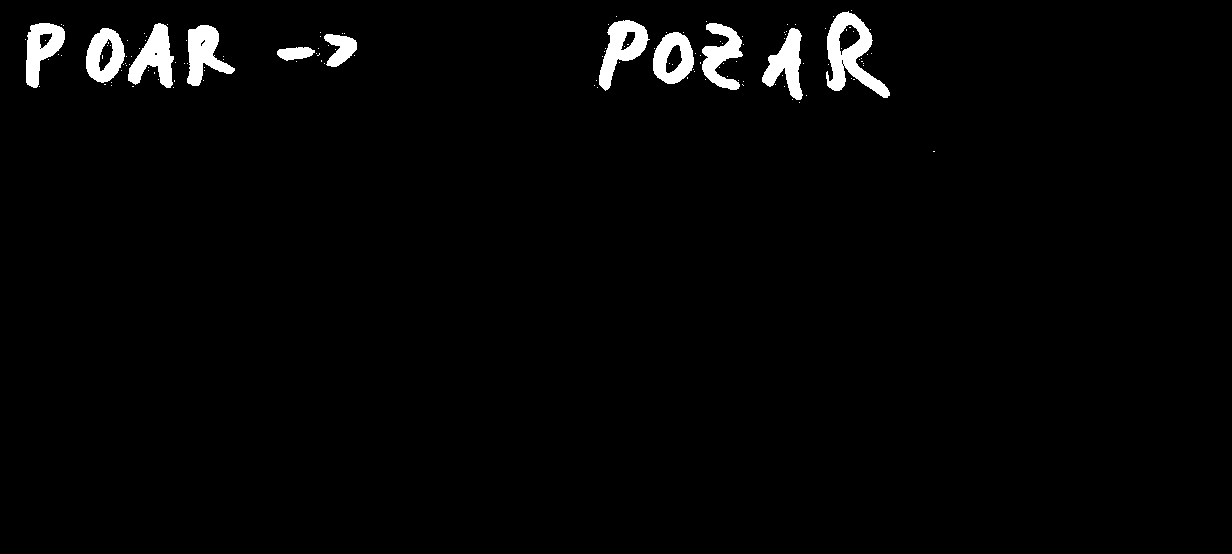 POAR -> POZAR